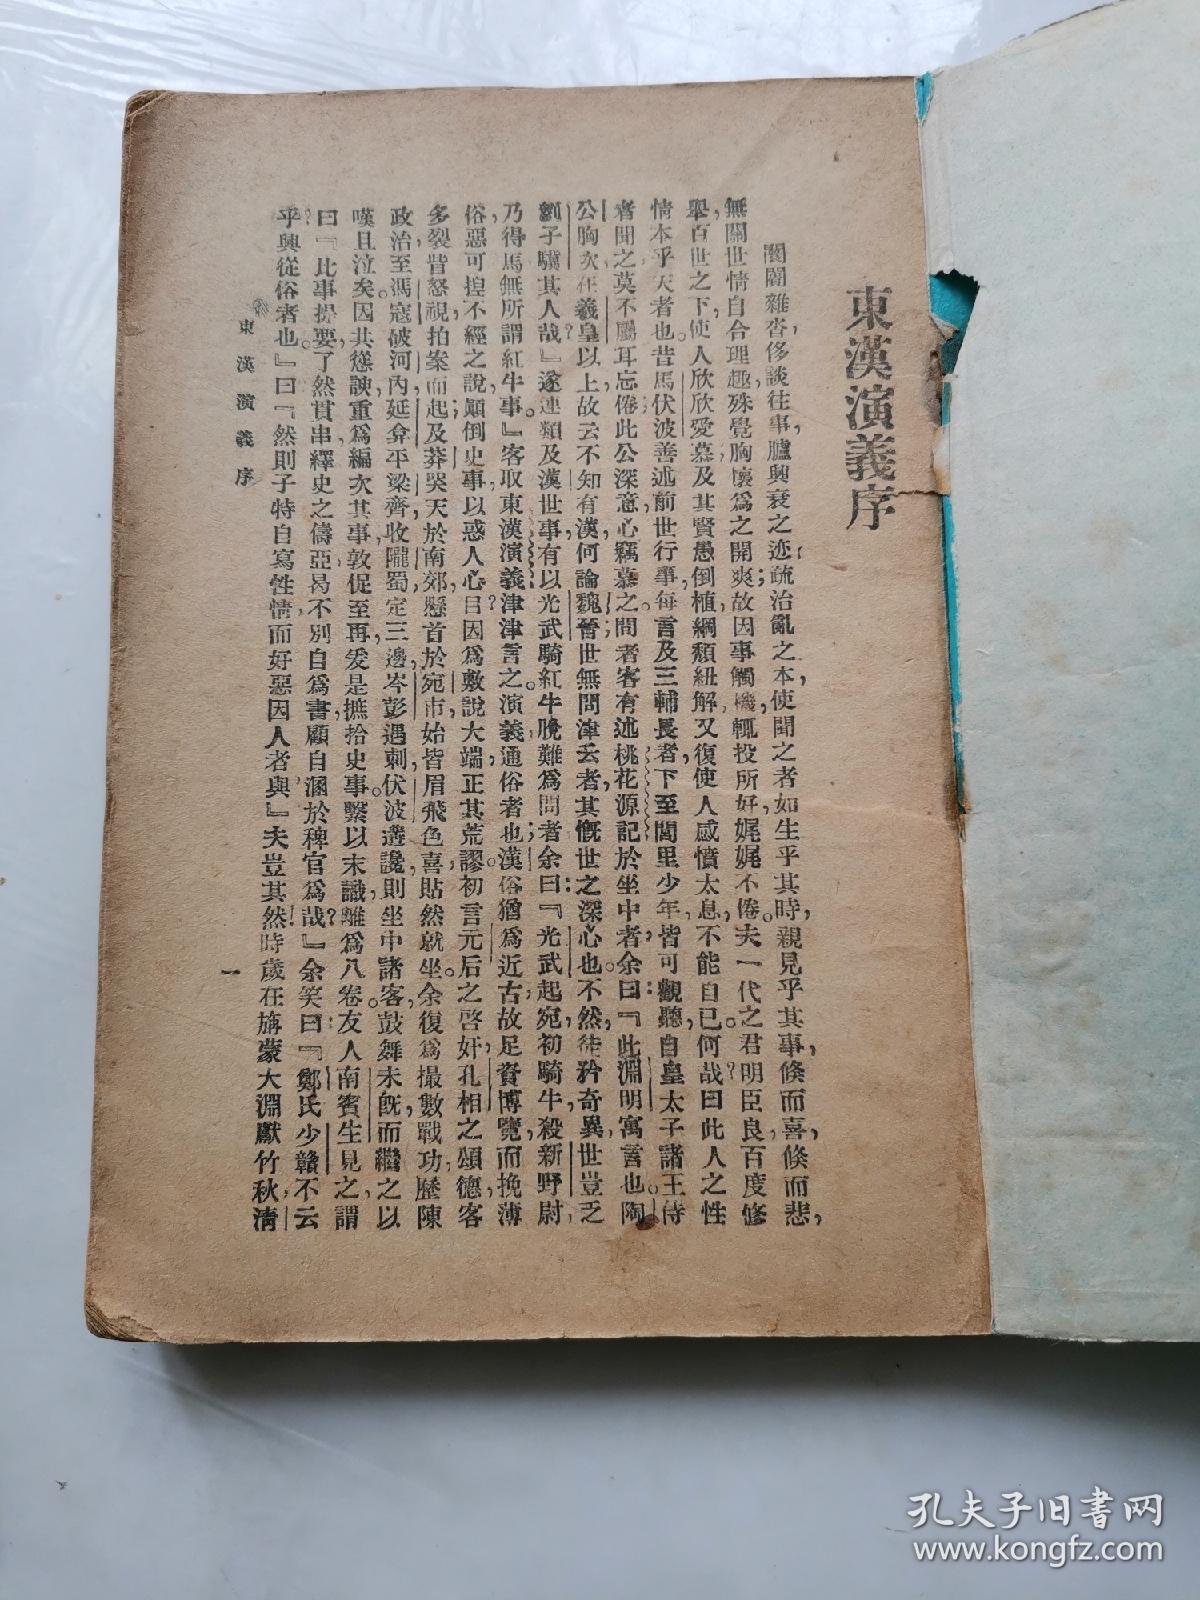 東漢演義序
閭閻雜沓侈談往事臚興衰之迹疏治亂之本使聞之者如生乎其時親見乎其事倏而喜倏而悲
無關世情自合理趣殊覺胸懷爲之開爽故因事觸機輒投所好娓娓不倦夫一代之君明臣良百度修
舉百世之下使人欣欣愛慕及其賢愚倒植綱頹紐解又復使人感憤太息不能自已何哉曰此人之性
情本乎天者也昔馬伏波善述前世行事每言及三輔長者下至閭里少年皆可觀聽自皇太子諸王侍
者聞之莫不屬耳忘倦此公深意心竊慕之間者客有述桃花源記於坐中者余曰『此淵明寓言也陶
公胸次在羲皇以上故云不知有漢何論魏晉世無問津云者其慨世之深心也不然徒矜奇異世豈乏
劉子驥其人哉』遂連類及漢世事有以光武騎紅牛脫難爲問者余曰『光武起宛初騎牛殺新野尉
乃得馬無所謂紅牛事』客取東漢演義津津言之演義通俗者也漢俗猶爲近古故足資博覽而挽薄
俗惡可捏不經之說顚倒史事以惑人心目因爲敷說大端正其荒謬初言元后之啓奸孔相之頌德客
多裂眥怒視拍案而起及莽哭天於南郊懸首於宛市始皆眉飛色喜貼然就坐余復爲撮數戰功歷陳
政治至馮寇破河內延弇平梁齊收隴蜀定三邊岑彭遇刺伏波遘讒則坐中諸客鼓舞未旣而繼之以
嘆且泣矣因共慫諛重爲編次其事敦促至再爰是摭拾史事繫以末識離爲八卷友人南賓生見之謂
曰『此事提要了然貫串繹史之儔亞曷不別自爲書顧自溷於稗官爲哉』余笑曰『鄭氏少贛不云
乎興從俗者也』曰『然則子特自寫性情而好惡因人者與』夫豈其然時歲在旃蒙大淵獻竹秋清
東漢演義序
一
孔夫子旧书网
www.kongfz.com